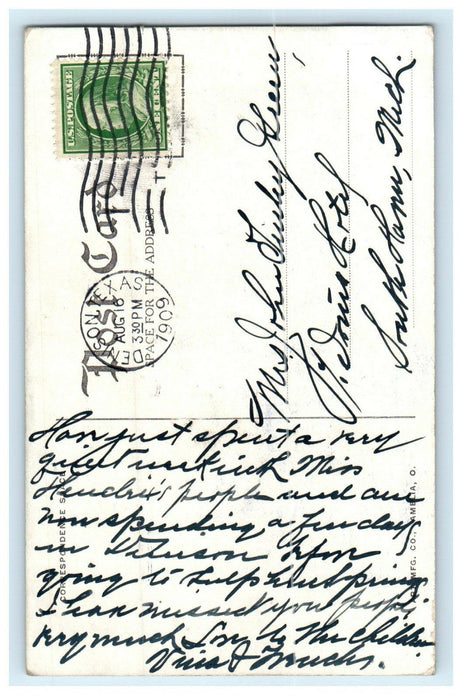 U.S. POSTAGE
ONE CENT
Post Card
SPACE FOR THE ADDRESS
DENISON, TEXAS
AUG 16
3 30 PM
1909
Mrs. John Finley Green,
Hotel
South Haven, Mich.
CORRESPONDENCE SPACE
MFG. CO., AMELIA, O.
Have just spent a very
quiet week with Miss
Hendrix's people and am
now spending a few days
in Denison before
going to Sulphur Springs.
I have missed you people
very much. Love to the children